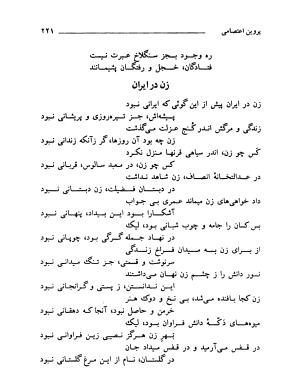 پروین اعتصامی ۲۲۱
ره وجود بجز سنگلاخ عبرت نیست
فتادگان، خجل و رفتگان پشیمانند
زن در ایران
زن در ایران پیش از این گوئی که ایرانی نبود
پیشه‌اش، جز تیره‌روزی و پریشانی نبود
زندگی و مرگش اندر کنج عزلت می‌گذشت
زن چه بود آن روزها، گر زآنکه زندانی نبود
کس چو زن، اندر سیاهی قرنها منزل نکرد
کس چو زن، در معبد سالوس، قربانی نبود
در عدالتخانهٔ انصاف، زن شاهد نداشت
در دبستان فضیلت، زن دبستانی نبود
داد خواهی‌های زن میماند عمری بی جواب
آشکارا بود این بیداد، پنهانی نبود
بس کسان را جامه و چوب شبانی بود، لیک
در نهاد جمله گرگی بود، چوپانی نبود
از برای زن به میدان فراخ زندگی
سرنوشت و قسمتی، جز تنگ میدانی نبود
نور دانش را ز چشم زن نهان می‌داشتند
این ندانستن، ز پستی و گرانجانی نبود
زن کجا بافنده می‌شد، بی نخ و دوک هنر
خرمن و حاصل نبود، آنجا که دهقانی نبود
میوه‌های دکهٔ دانش فراوان بود، لیک
بهر زن هرگز نصیبی زین فراوانی نبود
در قفس می‌آرمید و در قفس میداد جان
در گلستان، نام از این مرغ گلستانی نبود